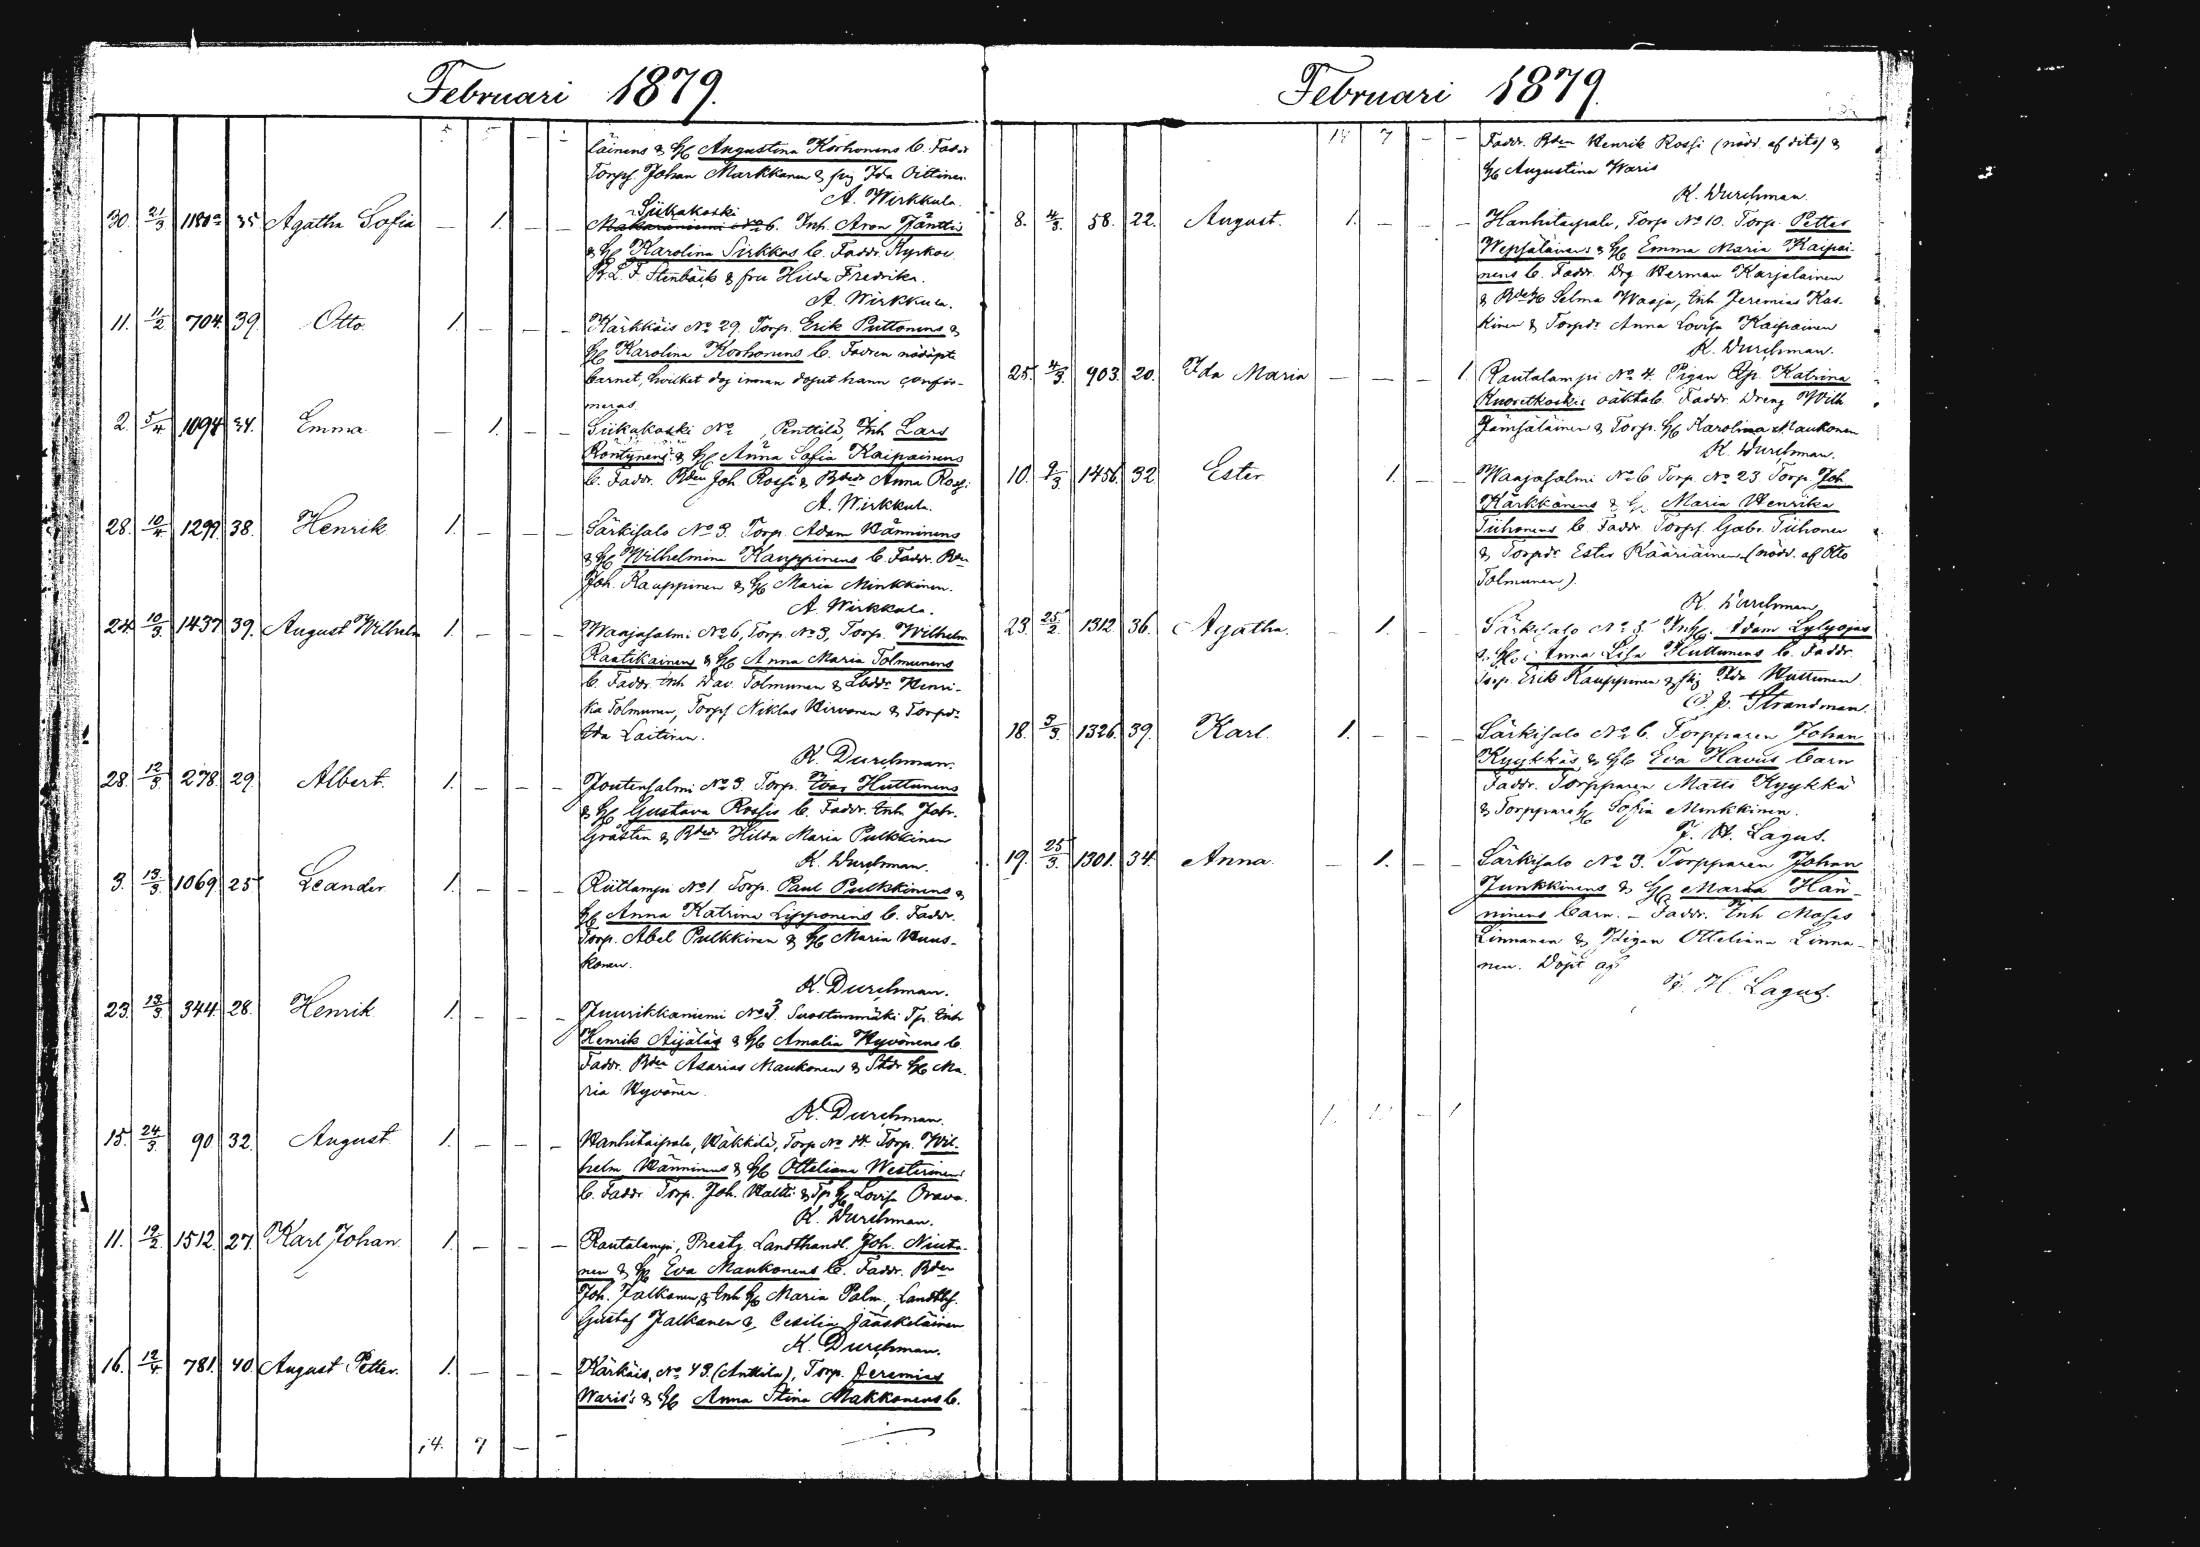 Februari 1879.
5 5 - -
läinens & H Augustina Korhonens b. Faddr
Torpf. Johan Markkanen & pig Ida Oittinen
A. Wirkkula.
Siikakoski
30. 21/3 1180a 35. Agatha Sofia — 1. — — Makaraniemi No 6. Inh. Aron Jänttis
& H Karolina Sirkkas b. Faddr. Kyrkoh
F. Stenbäck & fru Hilda Fredrika.
A. Wirkkula.
11. 11/2 704. 39. Otto. 1. — — — Kärkkäis No 29. Torp. Erik Puttonens &
H Karolina Korhonens b. Fadren nöddöpte
barnet, hvilket dog innan dopet hann confir-
meras.
2. 5/4 1094 24. Emma. — 1. — — Siikakoski No , Penttilä, Inh Lars
Röntynens & H Anna Sofia Kaipainens
b. Faddr. Bden Joh Rossi & Bdedr Anna Rossi
A. Wirkkula.
28. 10/4 1299. 38. Henrik 1. — — — Särkisalo No 3. Torp. Adam Hänninens
& H Wilhelmina Kauppinens b. Faddr. Bdn
Joh. Kauppinen & H Maria Minkkinen.
A. Wirkkula.
24. 10/3 1437 39. August Wilhelm 1. — — — Waajasalmi No 6, Torp. No 3, Torp. Wilhelm
Raatikainens & H Anna Maria Tolmunens
b. Faddr. Inh Dav. Tolmunen & Henri-
ka Tolmunen, Torpf Niklas Hirvonen & Torpdr
Ida Laitinen.
K. Durchman.
28. 12/3 278. 29. Albert. 1. — — — Joutensalmi No 3. Torp. Huttunens
& H Gustava Rossis b. Faddr. Inh Joh.
Gråsten & Bdedr Hilda Maria Pulkkinen
K. Durchman.
3. 13/3 1069. 25 Leander 1. — — — Riitlampi No 1 Torp. Paul Pulkkinens &
H Anna Katrina Lipponens b. Faddr.
Torp. Abel Pulkkinen & H Maria Huus-
konen.
K. Durchman.
23. 13/3 344. 28. Henrik 1. — — — Juurikkaniemi No 3. Suostunmäki Tp. Inh
Henrik Äijäläs & H Amalia Hyvönens b.
Faddr. Bden Asarias Maukonen & H Ma-
ria Hyvönen.
K. Durchman.
15. 24/3 90 32. August 1. — — — Hanhitaipale, Häkkilä, Torp No 14. Torp. Wil-
helm Hänninens & H Otteliana Westerinens
b. Faddr Torp. Joh. Waltti & Tp H Lovisa Orava.
K. Durchman.
11. 19/2 1512. 27. Karl Johan. 1. — — — Rautalampi, Prestg. Landthandl. Joh. Niuta-
nen & H Eva Maukonens b. Faddr. Bden
Joh. Jalkanen & Inh H Maria Palm, Landthf.
Gustaf Jalkanen & Cesilia Jääskeläinen
K. Durchman.
16. 12/4. 781. 40. August Petter. 1. — — — Kärkäis, No 43. (Anttila), Torp. Jeremias
Waris's & H Anna Stina Makkonens b.
14. 7 — —
Februari 1879.
14 7 — — Faddr. Bden Henrik Rossi (nödd. af dito) &
H Augustina Waris
K. Durchman.
8. 4/3. 58. 22. August. 1. — — — Hanhitaipale, Torp No 10. Torp. Petter
Wepsäläinens & H Emma Maria Kaipai-
nens b. Faddr. Drg Herman Karjalainen
& BdeH Selma Waaja, Inh Jeremias Kas-
kinen & Torpdr Anna Lovisa Kaipainen
K. Durchman.
25. 4/3. 903. 20. Ida Maria — — — 1 Rautalampi No 4. Pigan Katrina
Kuoretkoskis oäktab. Faddr. Dreng Wilh
Jämsäläinen & Torp. H Karolina Maukonen
K. Durchman.
10. 9/3 1456. 32 Ester 1. — — Waajasalmi No 6 Torp. No 23. Torp. Joh
Kärkkänens & H Maria Henrika
Tiihonens b. Faddr. Torpf. Gabr. Tiihonen
& Torpdr Ester Kääriäinen (nödd. af Otto
Tolmunen).
K. Durchman
23. 25/2 1312. 36. Agatha. — 1. — — Särkisalo No 3. Adam Lylyojas
& H Anna Lisa Huttunens b. Faddr.
Torp. Erik Kauppinen & pig Ida Huttunen.
Strandman.
18. 3/3. 1326. 39. Karl. 1. — — — Särkisalo No 6. Torpparen Johan
Kyykkäs & H Eva Havus barn
Faddr. Torpparen Matts Kyykkä
& Torppare H Sofia Minkkinen.
F. H. Lagus.
19. 25/3. 1301. 34. Anna. — 1. — — Särkisalo No 3. Torpparen Johan
Junkkinens & H Maria Hän-
ninens barn. — Faddr. Inh Moses
Linnanen & Pigan Otteliana Linna-
nen. Döpt af
F. H. Lagus.
— 1